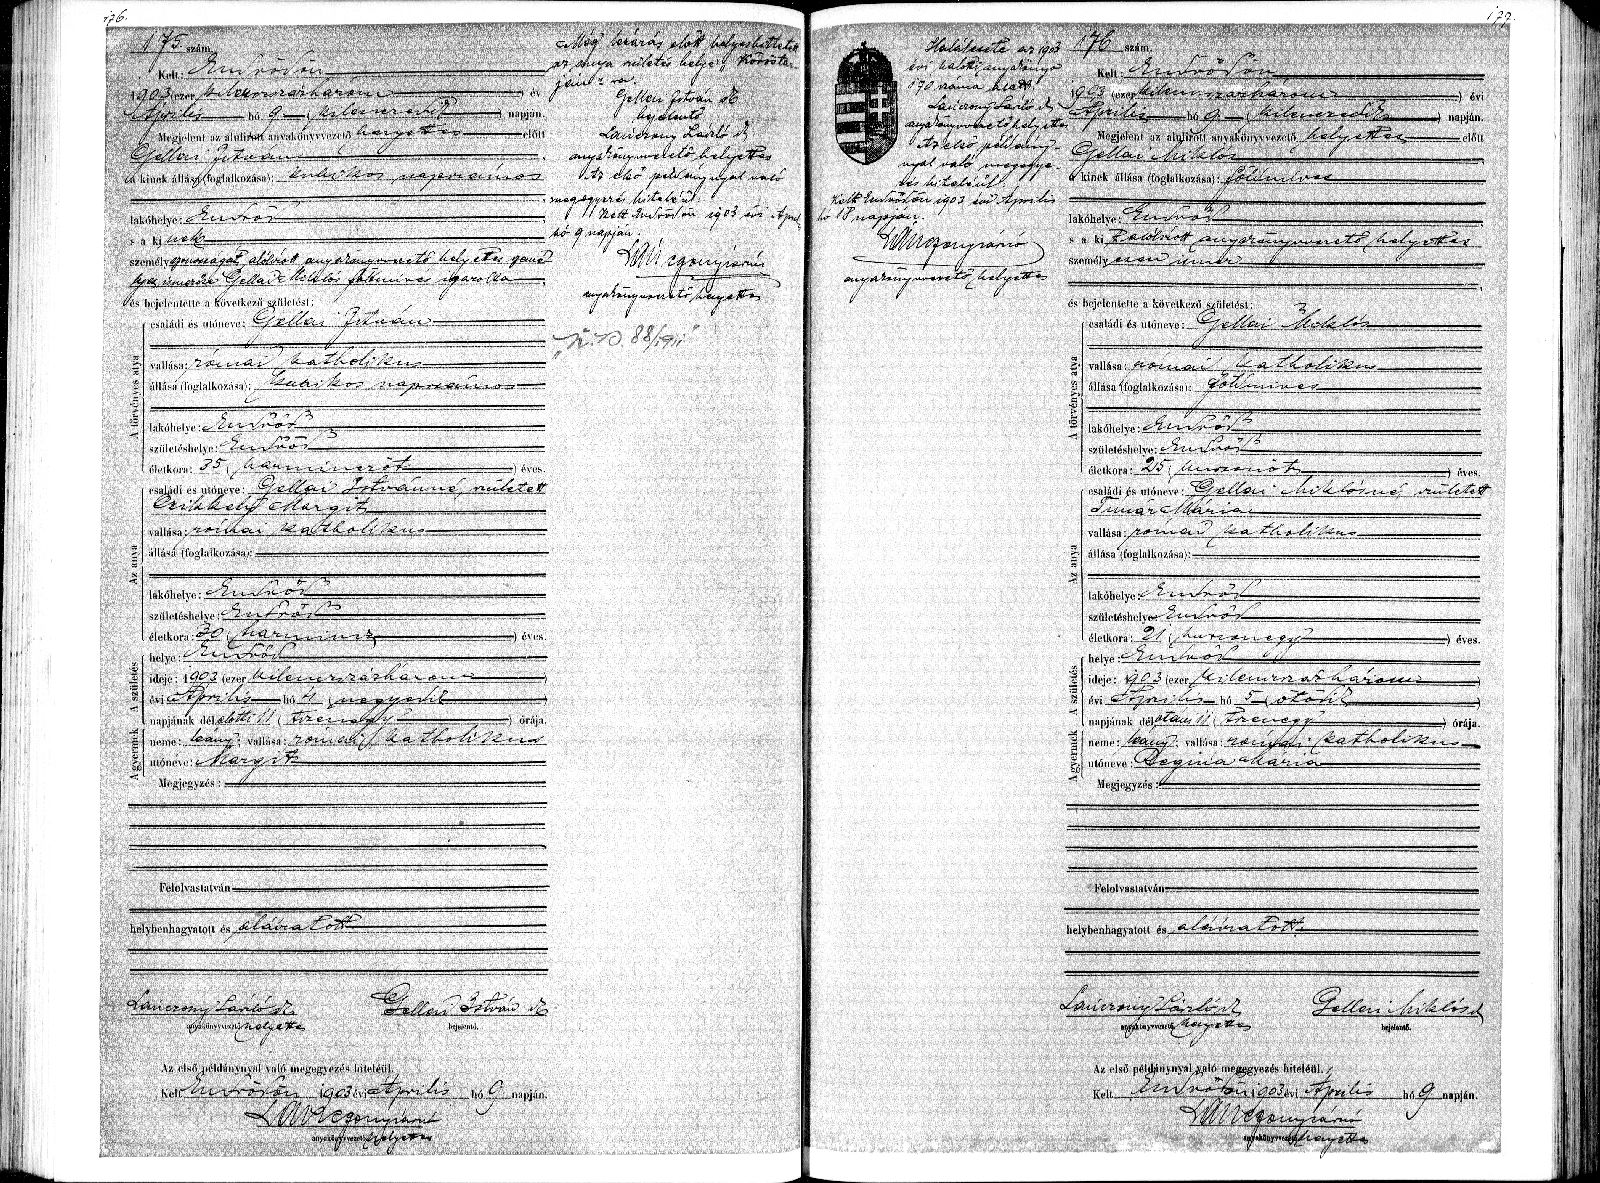 176.
175. szám.
Kelt: Endrődön
1903 (ezer kilenczszázhárom) év
Április hó 9 (kilenczedik) napján.
Megjelent az alulirott anyakönyvvezető helyettes előtt
Gellai István
a kinek állása (foglalkozása): kubikos napszámos
lakóhelye: Endrőd
s a ki nek
személyazonosságát alólirott anyakönyvvezető helyettes
ismerőse Gellai Miklós földmives igazolta
és bejelentette a következő születést:
A törvényes atya
családi és utóneve: Gellai István
vallása: római katholikus
állása (foglalkozása): kubikos napszámos
lakóhelye: Endrőd
születéshelye: Endrőd
életkora: 35 (harminczöt) éves.
Az anya
családi és utóneve: Gellai Istvánné, született
Czikkely Margit
vallása: római katholikus
állása (foglalkozása):
lakóhelye: Endrőd
születéshelye: Endrőd
életkora: 30 (harmincz) éves.
A születés
helye: Endrőd
ideje: 1903 (ezer kilenczszázhárom
évi Április hó 4 (negyedik)
napjának délelőtti 11 (tizenegy) órája.
A gyermek
neme: leány; vallása: római katholikus
utóneve: Margit
Megjegyzés:
Felolvastatván
helybenhagyatott és aláiratott
Lanczony László sk
anyakönyvvezető helyettes
Gellai István sk
bejelentő.
Az első példánynyal való megegyezés hiteléül.
Kelt Endrődön 1903 évi Április hó 9 napján.
anyakönyvvezető helyettes
Még lezárás előtt helyesbittetett
az anya születés helye Köröstar-
ján-ra.
Gellai István sk
bejelentő
Lanczony László sk
anyakönyvvezető helyettes
Az első példánynyal való
megegyezés hiteléül.
Kelt Endrődön 1903 évi April
hó 9 napján.
anyakönyvvezető helyettes
88/1911
177.
Halálesete az 1903
évi halotti anyakönyv
170 száma alatt.
Lanczony László sk
anyakönyvvezető helyettes
Az első példány-
nyal való megegye-
zés hiteléül.
Kelt Endrődön 1903 évi Április
hó 18 napján.
anyakönyvvezető helyettes
176 szám.
Kelt: Endrődön
1903 (ezer kilenczszázhárom) évi
Április hó 9 (kilenczedik) napján.
Megjelent az alulirott anyakönyvvezető helyettes előtt
Gellai Miklós
a kinek állása (foglalkozása): földmives
lakóhelye: Endrőd
s a kit alólirott anyakönyvvezető helyettes
személyesen ismer
és bejelentette a következő születést:
A törvényes atya
családi és utóneve: Gellai Miklós
vallása: római katholikus
állása (foglalkozása): földmives
lakóhelye: Endrőd
születéshelye: Endrőd
életkora: 25 (huszonöt) éves.
Az anya
családi és utóneve: Gellai Miklósné, született
Timár Mária
vallása: római katholikus
állása (foglalkozása):
lakóhelye: Endrőd
születéshelye: Endrőd
életkora: 21 (huszonegy) éves.
A születés
helye: Endrőd
ideje: 1903 (ezer kilenczszázhárom
évi Április hó 5 (ötödik)
napjának délutáni 11 (tizenegy) órája.
A gyermek
neme: leány; vallása: római katholikus
utóneve: Regina Mária
Megjegyzés:
Felolvastatván
helybenhagyatott és aláiratott
Lanczony László sk
anyakönyvvezető helyettes
Gellai Miklós sk
bejelentő.
Az első példánynyal való megegyezés hiteléül.
Kelt Endrődön 1903 évi Április hó 9 napján.
anyakönyvvezető helyettes